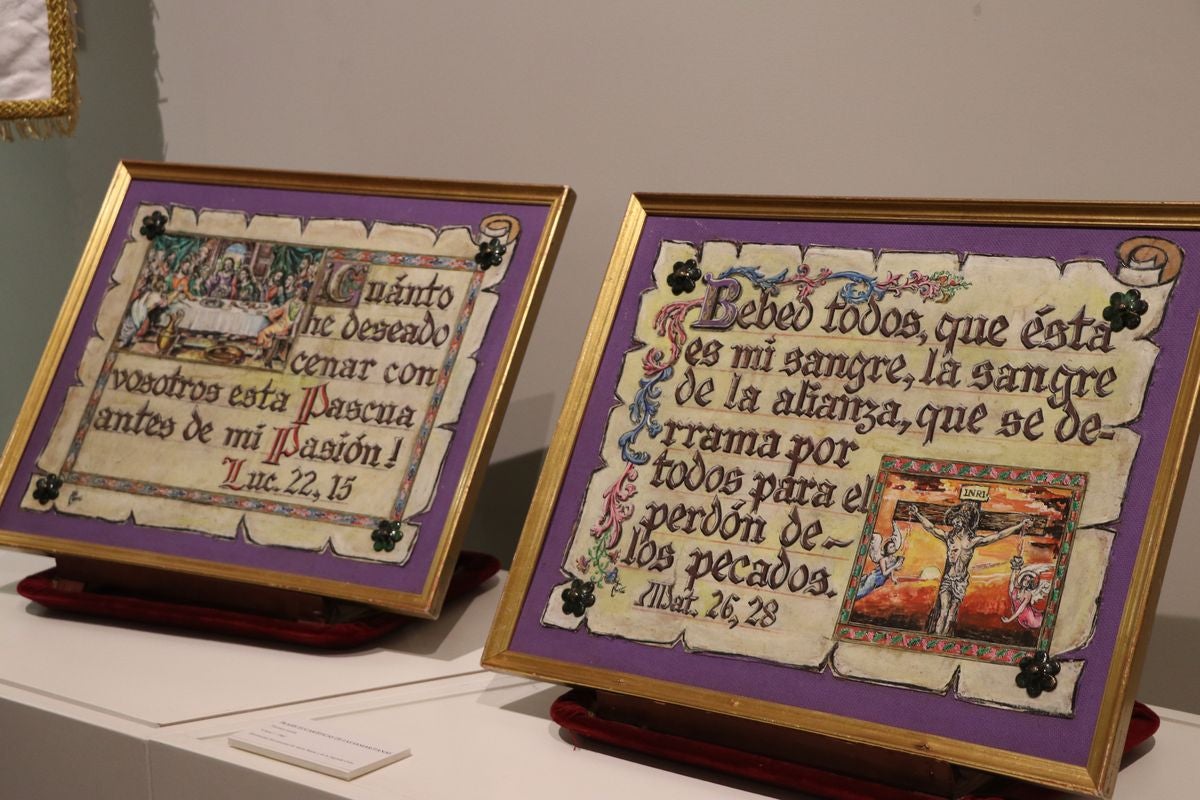 Cuánto
he deseado
cenar con
vosotros esta Pascua
antes de mi Pasión!
Luc. 22, 15
Bebed todos, que ésta
es mi sangre, la sangre
de la alianza, que se de-
rrama por
todos para el
perdón de
los pecados.
Mat. 26, 28
INRI